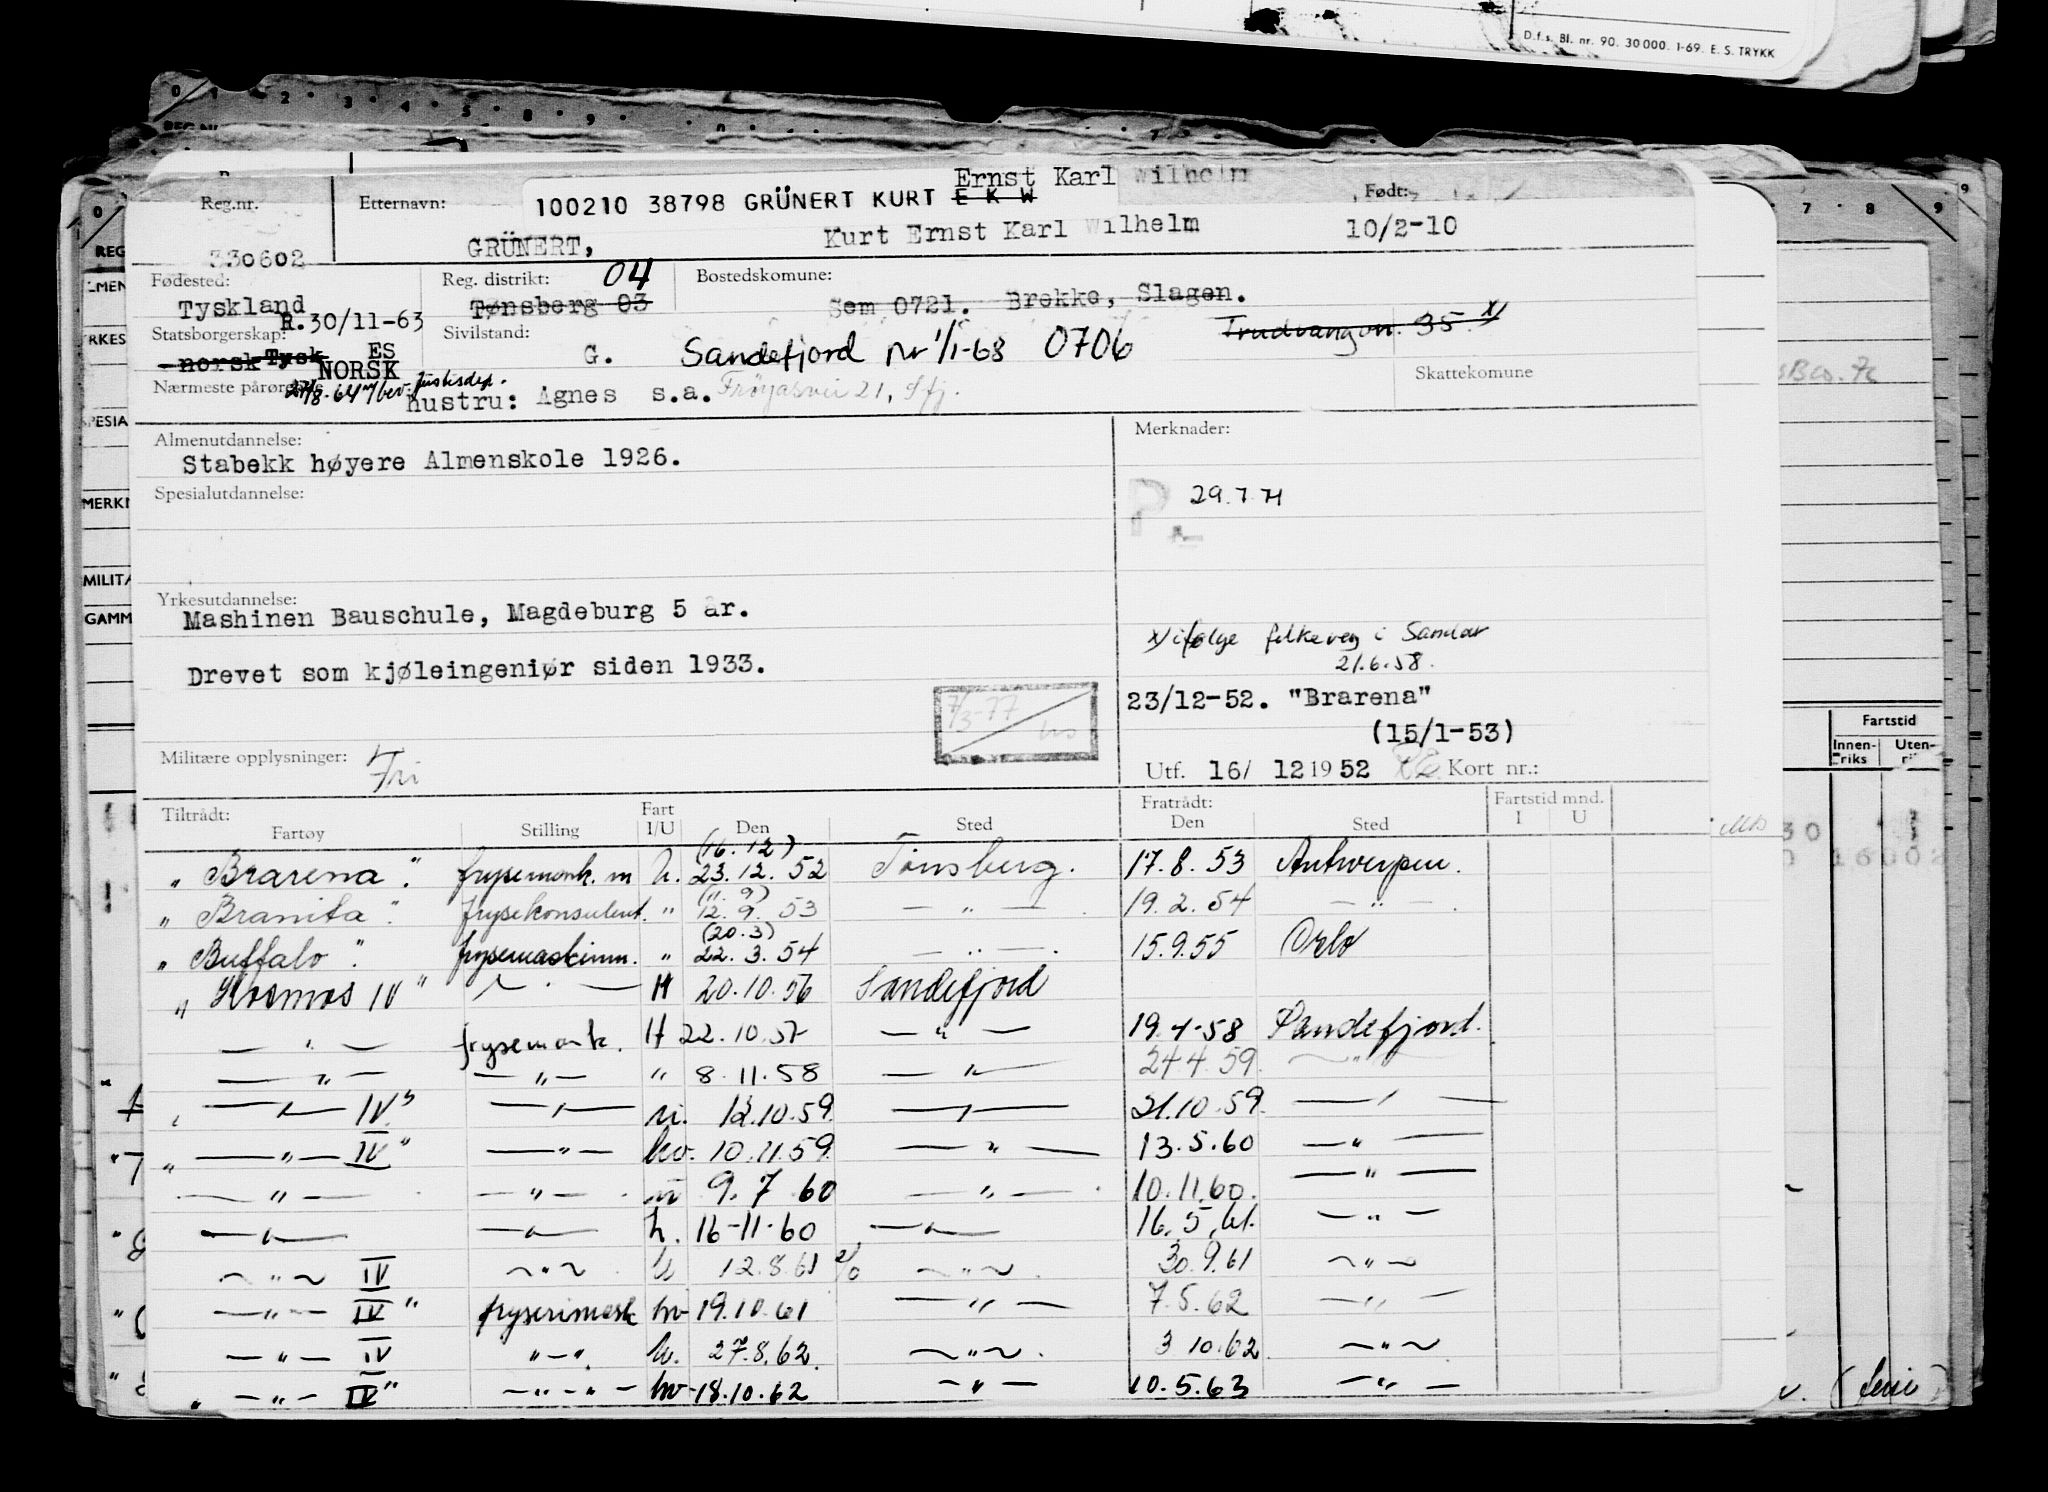 D.f.s. Bl. nr. 90. 30 000. 1-69. E. S. TRYKK
Ernst Karl Wilhelm
Reg.nr. Etternavn: 100210 38798 GRÜNERT KURT E K W Født:
330602 GRÜNERT, Kurt Ernst Karl Wilhelm 10/2-10
Fødested: Reg. distrikt: 04 Bostedskomune:
Tyskland Tønsberg 03 Sem 0721. Brekke, Slagen.
R.30/11-63 Trudvangvn. 35 x/
Statsborgerskap: Sivilstand:
norsk Tysk ES G. Sandefjord nr 1/1-68 0706
NORSK
Nærmeste pårørende Skattekomune
27/8-64 m/bev. Justisdep.
hustru: Agnes s.a. Frøyasvei 21, Sfj.
Almenutdannelse: Merknader:
Stabekk høyere Almenskole 1926.
Spesialutdannelse: P. 29.7.71
Yrkesutdannelse:
Mashinen Bauschule, Magdeburg 5 år.
x/ ifølge folkereg i Sandar
21.6.58.
Drevet som kjøleingeniør siden 1933.
7/3-77
23/12-52. "Brarena"
(15/1-53)
Militære opplysninger: Fri
Utf. 16/ 12 1952 Kort nr.:
Tiltrådt: Fart Fratrådt: Fartstid mnd.
Fartøy Stilling I/U Den Sted Den Sted I U
(16.12)
"Brarena". frysemask. m u. 23.12.52 Tønsberg. 17.8.53 Antwerpen.
(11.9)
"Branita". frysekonsulent. " 12.9.53 — " — 19.2.54 — " —.
(20.3)
"Buffalo". frysemaskinm. " 22.3.54 — " —. 15.9.55 Oslo
"Kosmos IV" — " — H 20.10.56 Sandefjord
— " — frysemask. H 22.10.57 — " — 19.4-58 Sandefjord.
— " — — " — " 8.11.58 — " — 24.4.59. — " —
— " — IV" — " — 12.10.59. — " — 21.10.59. — " —
" — " — IV" — " — hv. 10.11.59. — " — 13.5.60 — " —
— " — — " — 9.7 60 — " — 10.11.60. — " —
— " — — " — h. 16-11-60 — " — 16.5.61. — " —
— " — IV — " — 12.8.61 — " — 30.9.61 — " —
— " — IV" hv 19.10.61 — " — 7.5.62 — " —
— " — IV — " — 27.8.62. — " — 3 10.62. — " —
" — " — IV" — " — " — hv 18.10.62 — " — 10.5.63 — " —
Fartstid
Innen-riks Uten-